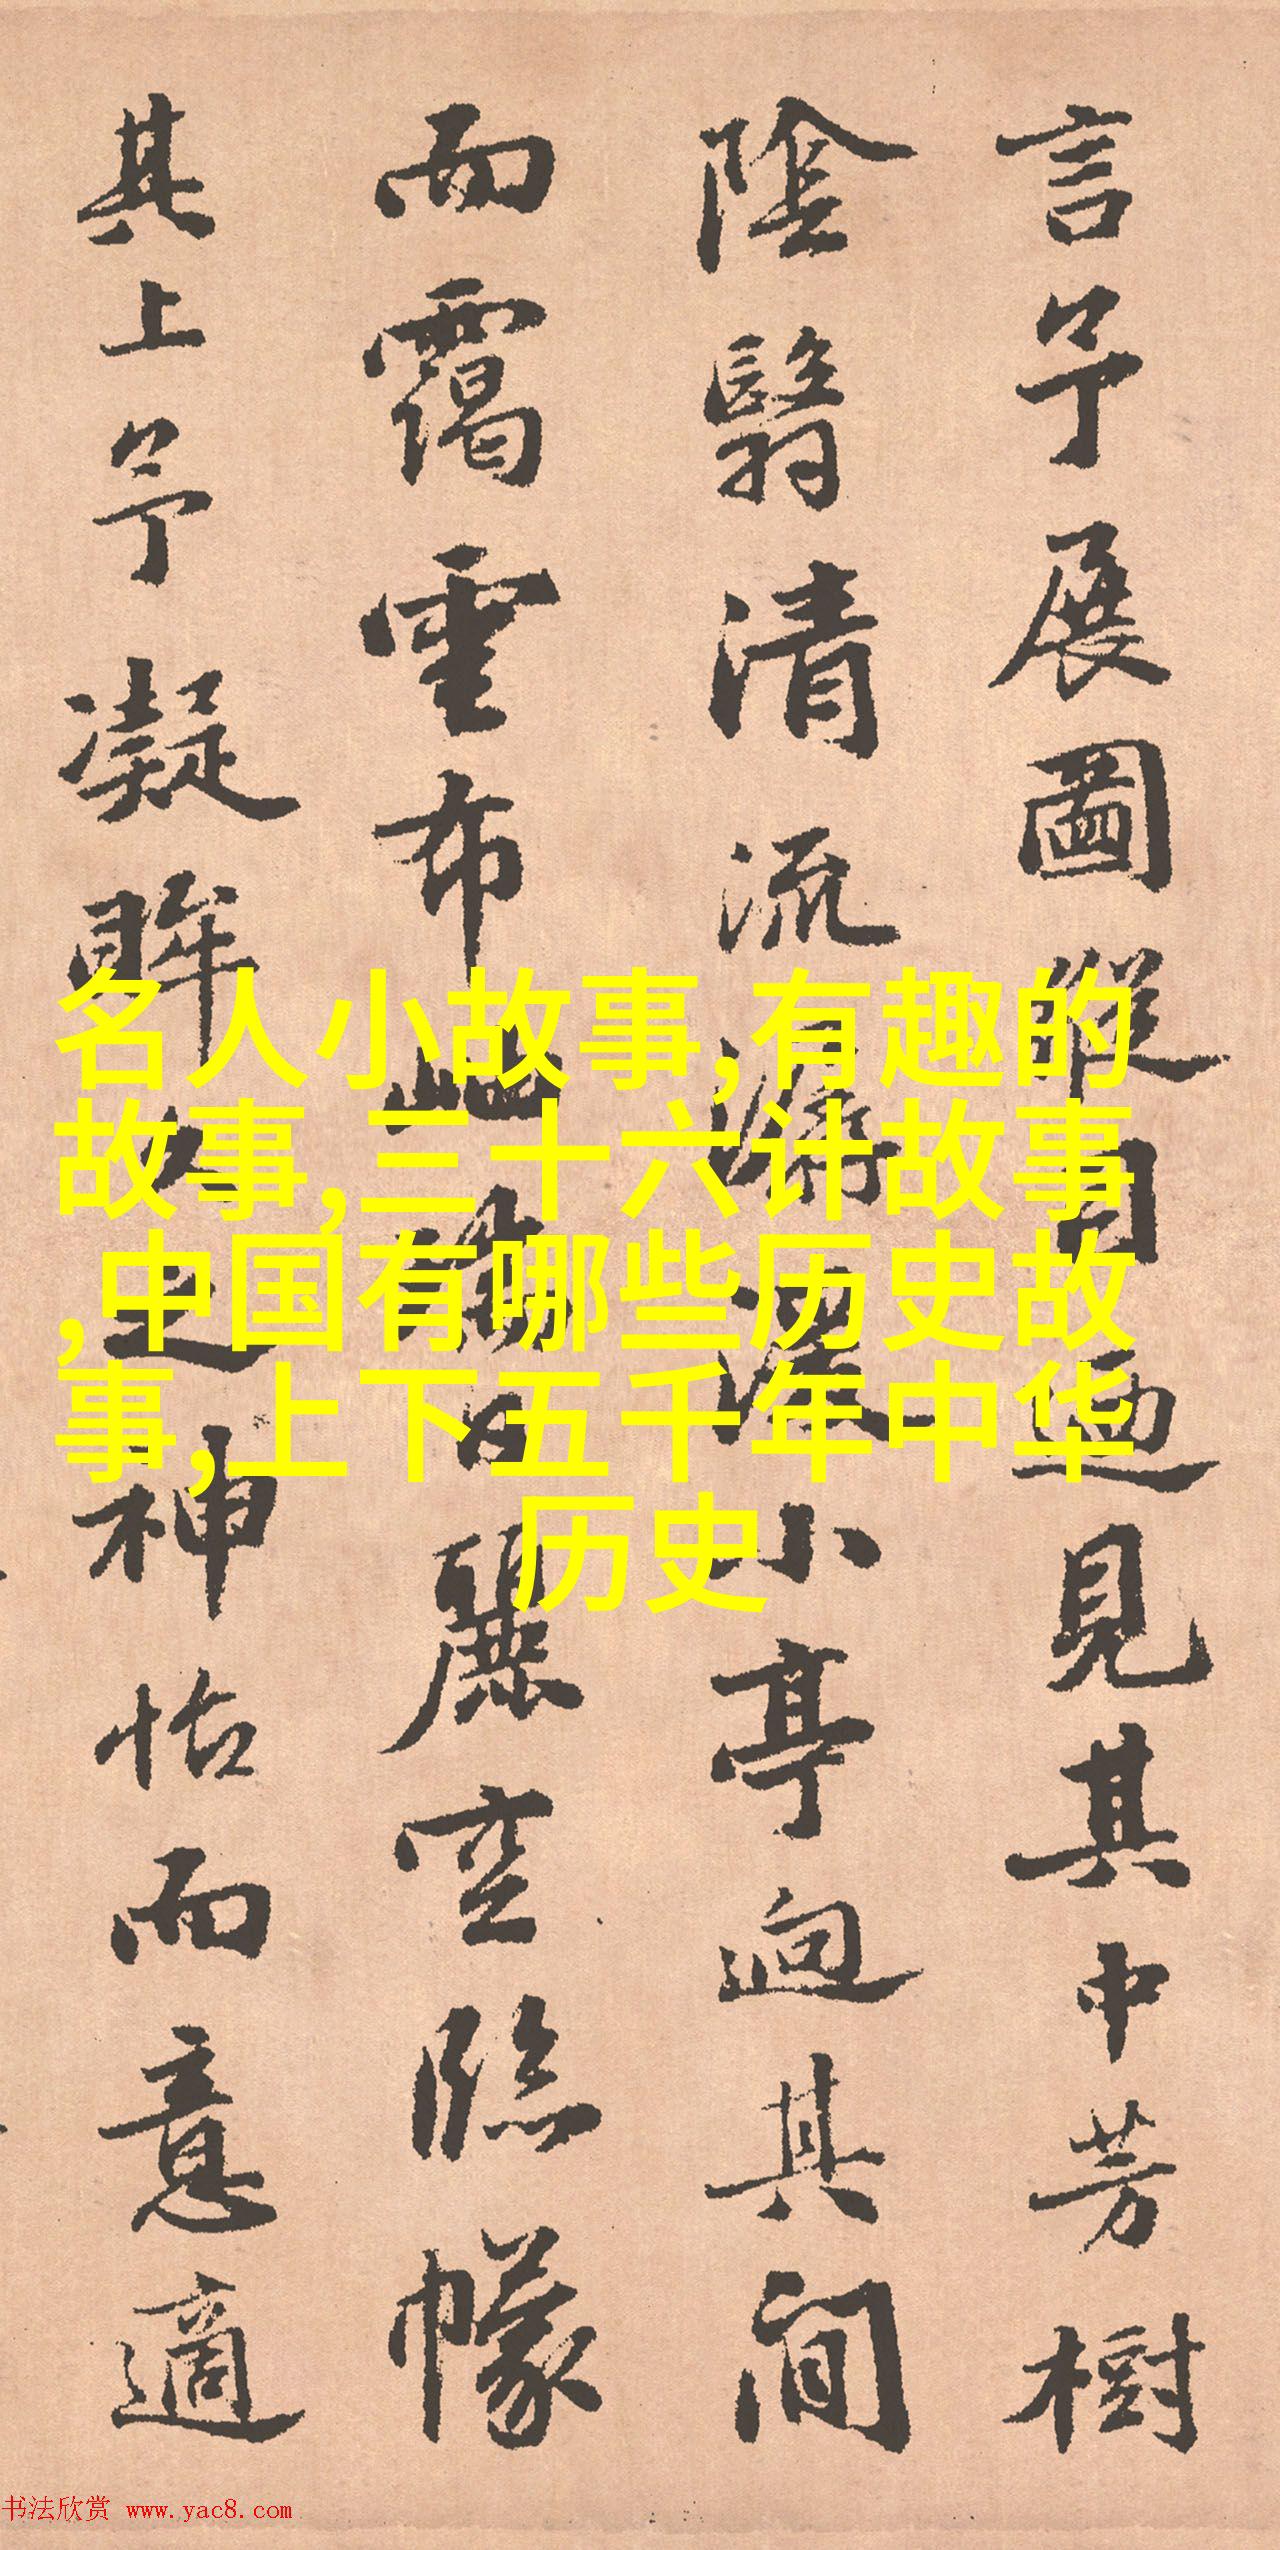 言予展圖縱目迺見其中芳樹
陰翳清流小亭逈其間
而靄雲布日麗空臨幪
其上予凝眸久之神怡而意適
名人小故事,有趣的
故事,三十六计故事
,中国有哪些历史故
事,上下五千年中华
历史
书法欣赏 www.yac8.com